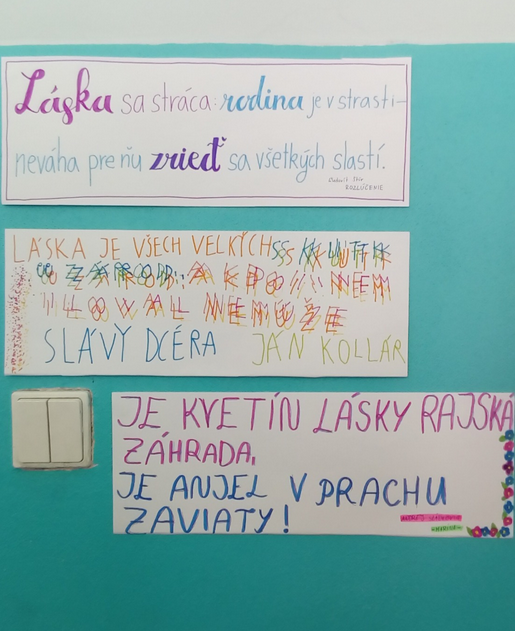 Láska sa stráca: rodina je v strasti–
neváha pre ňu zrieď sa všetkých slastí.
LÁSKA JE VŠECH VELKÝCH SKUTKŮ
ZÁROD: A KDO NEM
ILOWAL NEMŮŽE
SLÁVY DCÉRA JÁN KOLLÁR
JE KVETÍN LÁSKY RAJSKÁ
ZÁHRADA,
JE ANJEL V PRACHU
ZAVIATY!